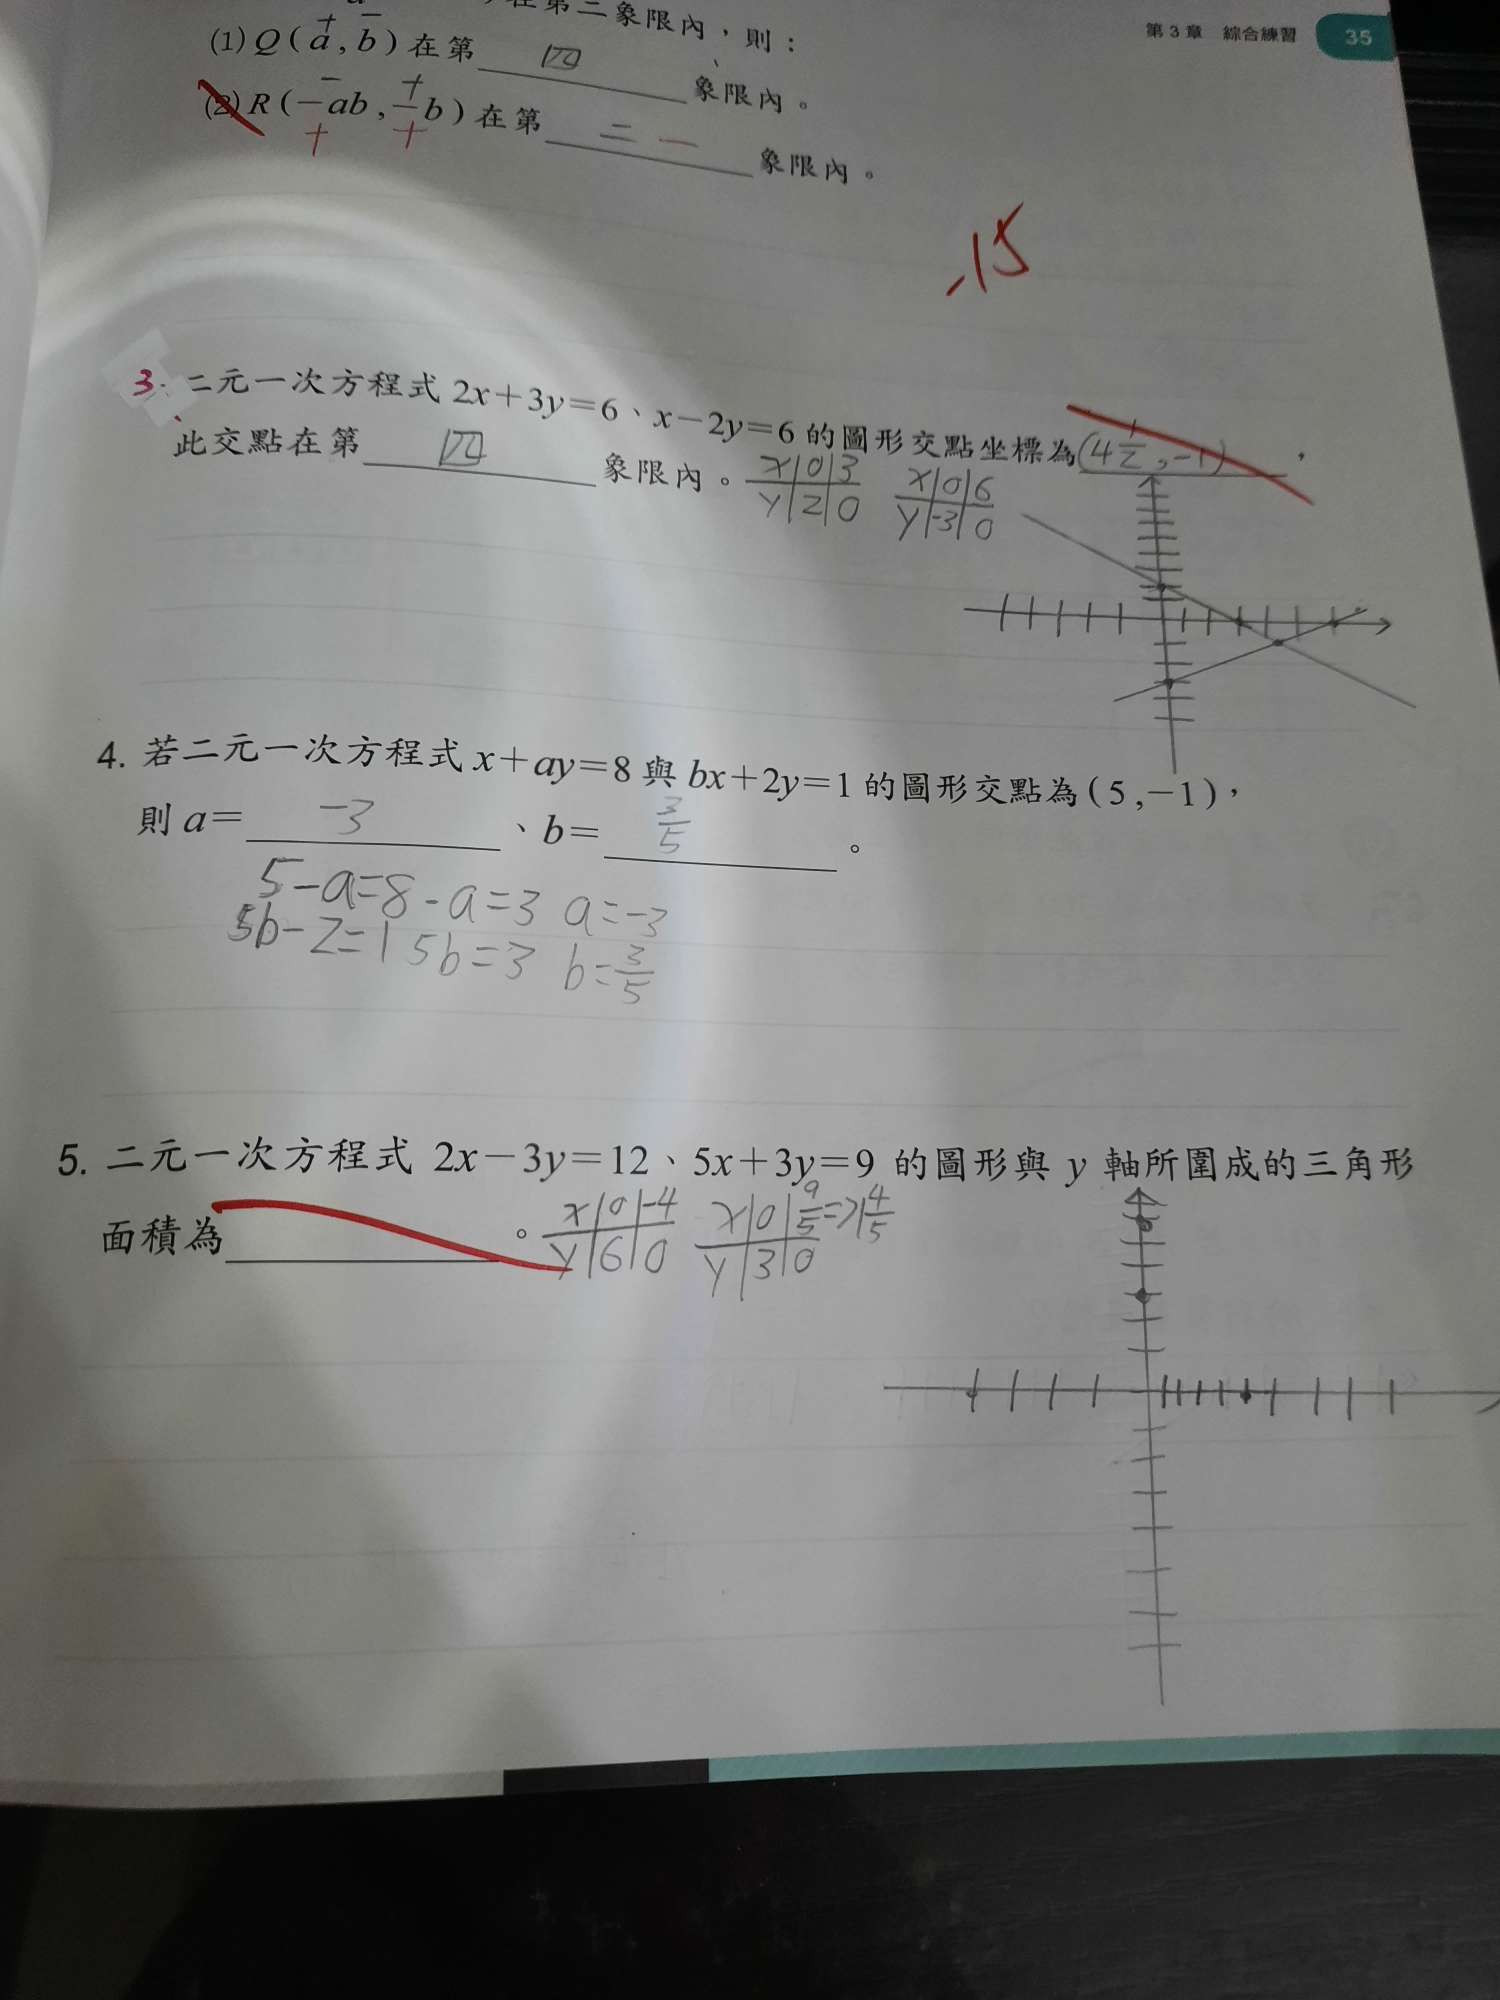 第 3 章 綜合練習 35
在第二象限內，則：
(1) Q ( a , b ) 在第 四 象限內。
+ −
(2) R ( −ab , −b ) 在第 二 一 象限內。
− +
+ +
-15
3. 二元一次方程式 2x＋3y＝6、x－2y＝6 的圖形交點坐標為 (4 1/2 , -1) ，
此交點在第 四 象限內。
x 0 3
y 2 0
x 0 6
y -3 0
4. 若二元一次方程式 x＋ay＝8 與 bx＋2y＝1 的圖形交點為 ( 5 ,－1 )，
則 a＝ -3 、b＝ 3/5 。
5-a=8 -a=3 a=-3
5b-2=1 5b=3 b=3/5
5. 二元一次方程式 2x－3y＝12、5x＋3y＝9 的圖形與 y 軸所圍成的三角形
面積為 。
x 0 -4
y 6 0
x 0 9/5 = 1 4/5
y 3 0